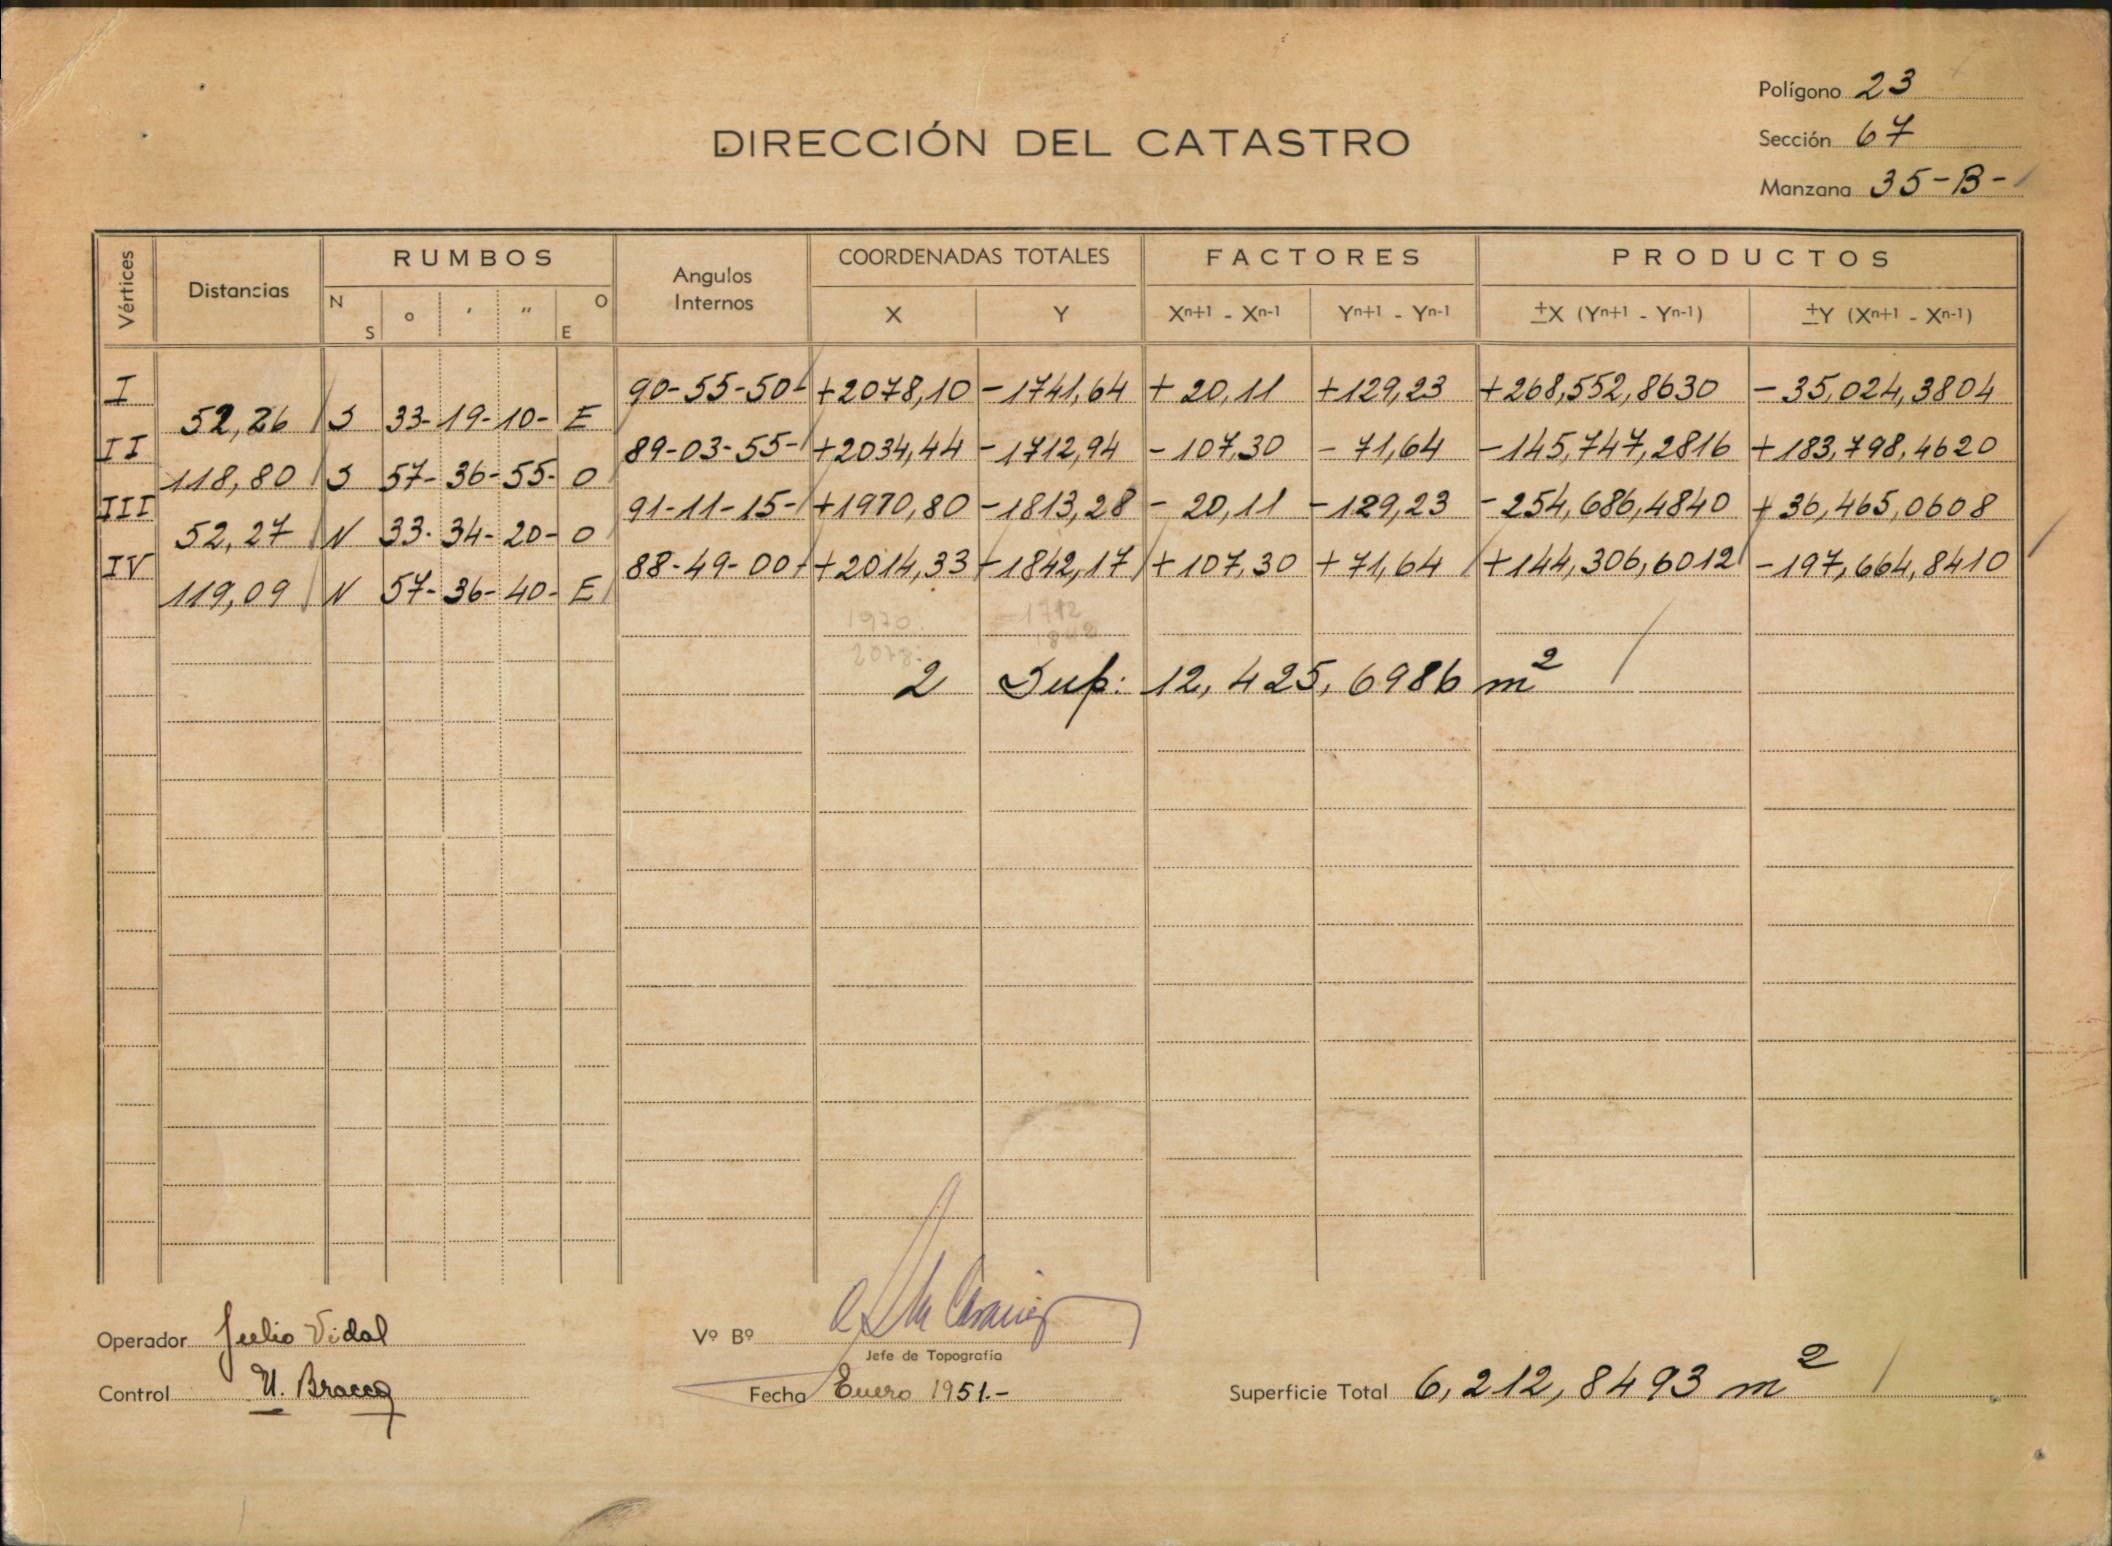 Polígono 23
DIRECCIÓN DEL CATASTRO
Sección 67
Manzana 35-B-
Vértices Distancias RUMBOS Angulos Internos COORDENADAS TOTALES FACTORES PRODUCTOS
N S o ' " O E X Y Xn+1 - Xn-1 Yn+1 - Yn-1 ±X (Yn+1 - Yn-1) ±Y (Xn+1 - Xn-1)
I 90-55-50- +2078,10 -1741,64 + 20,11 +129,23 +268,552,8630 - 35,024,3804
52,26 S 33-19-10- E
II 89-03-55- +2034,44 -1712,94 - 107,30 - 71,64 -145,747,2816 +183,798,4620
118,80 S 57-36-55- O
III 91-11-15- +1970,80 -1813,28 - 20,11 -129,23 -254,686,4840 + 36,465,0608
52,27 N 33-34-20- O
IV 88-49-00 +2014,33 -1842,17 +107,30 +71,64 +144,306,6012 -197,664,8410
119,09 N 57-36-40- E
1970 1712
2078 1842
2 Sup: 12,425,6986 m²
Operador Julio Vidal Vº Bº
Jefe de Topografía
Control U. Bracco Fecha Enero 1951.- Superficie Total 6,212,8493 m²